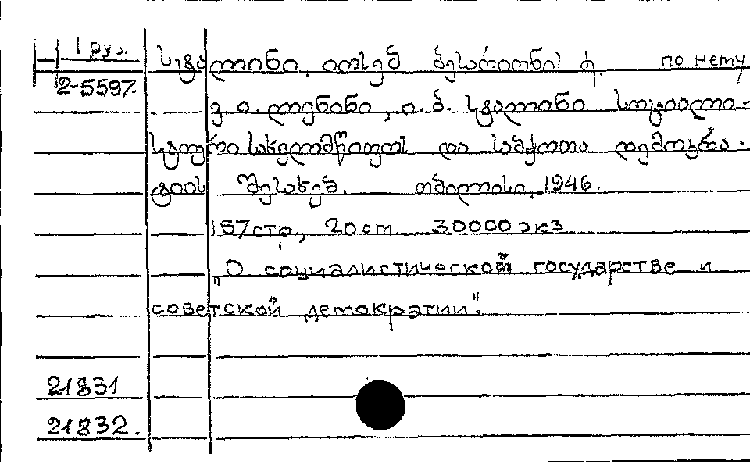 1 груз.
2-5597.
სტალინი, იოსებ ბესარიონის ძ. по нему
ვ. ი. ლენინი, ი. ბ. სტალინი სოციალი-
სტური სახელმწიფოს და საბჭოთა დემოკრა-
ტიის შესახებ. თბილისი, 1946.
157 стр., 20 cm 30000 экз
"О социалистической государстве и
советской демократии".
21831
21832.